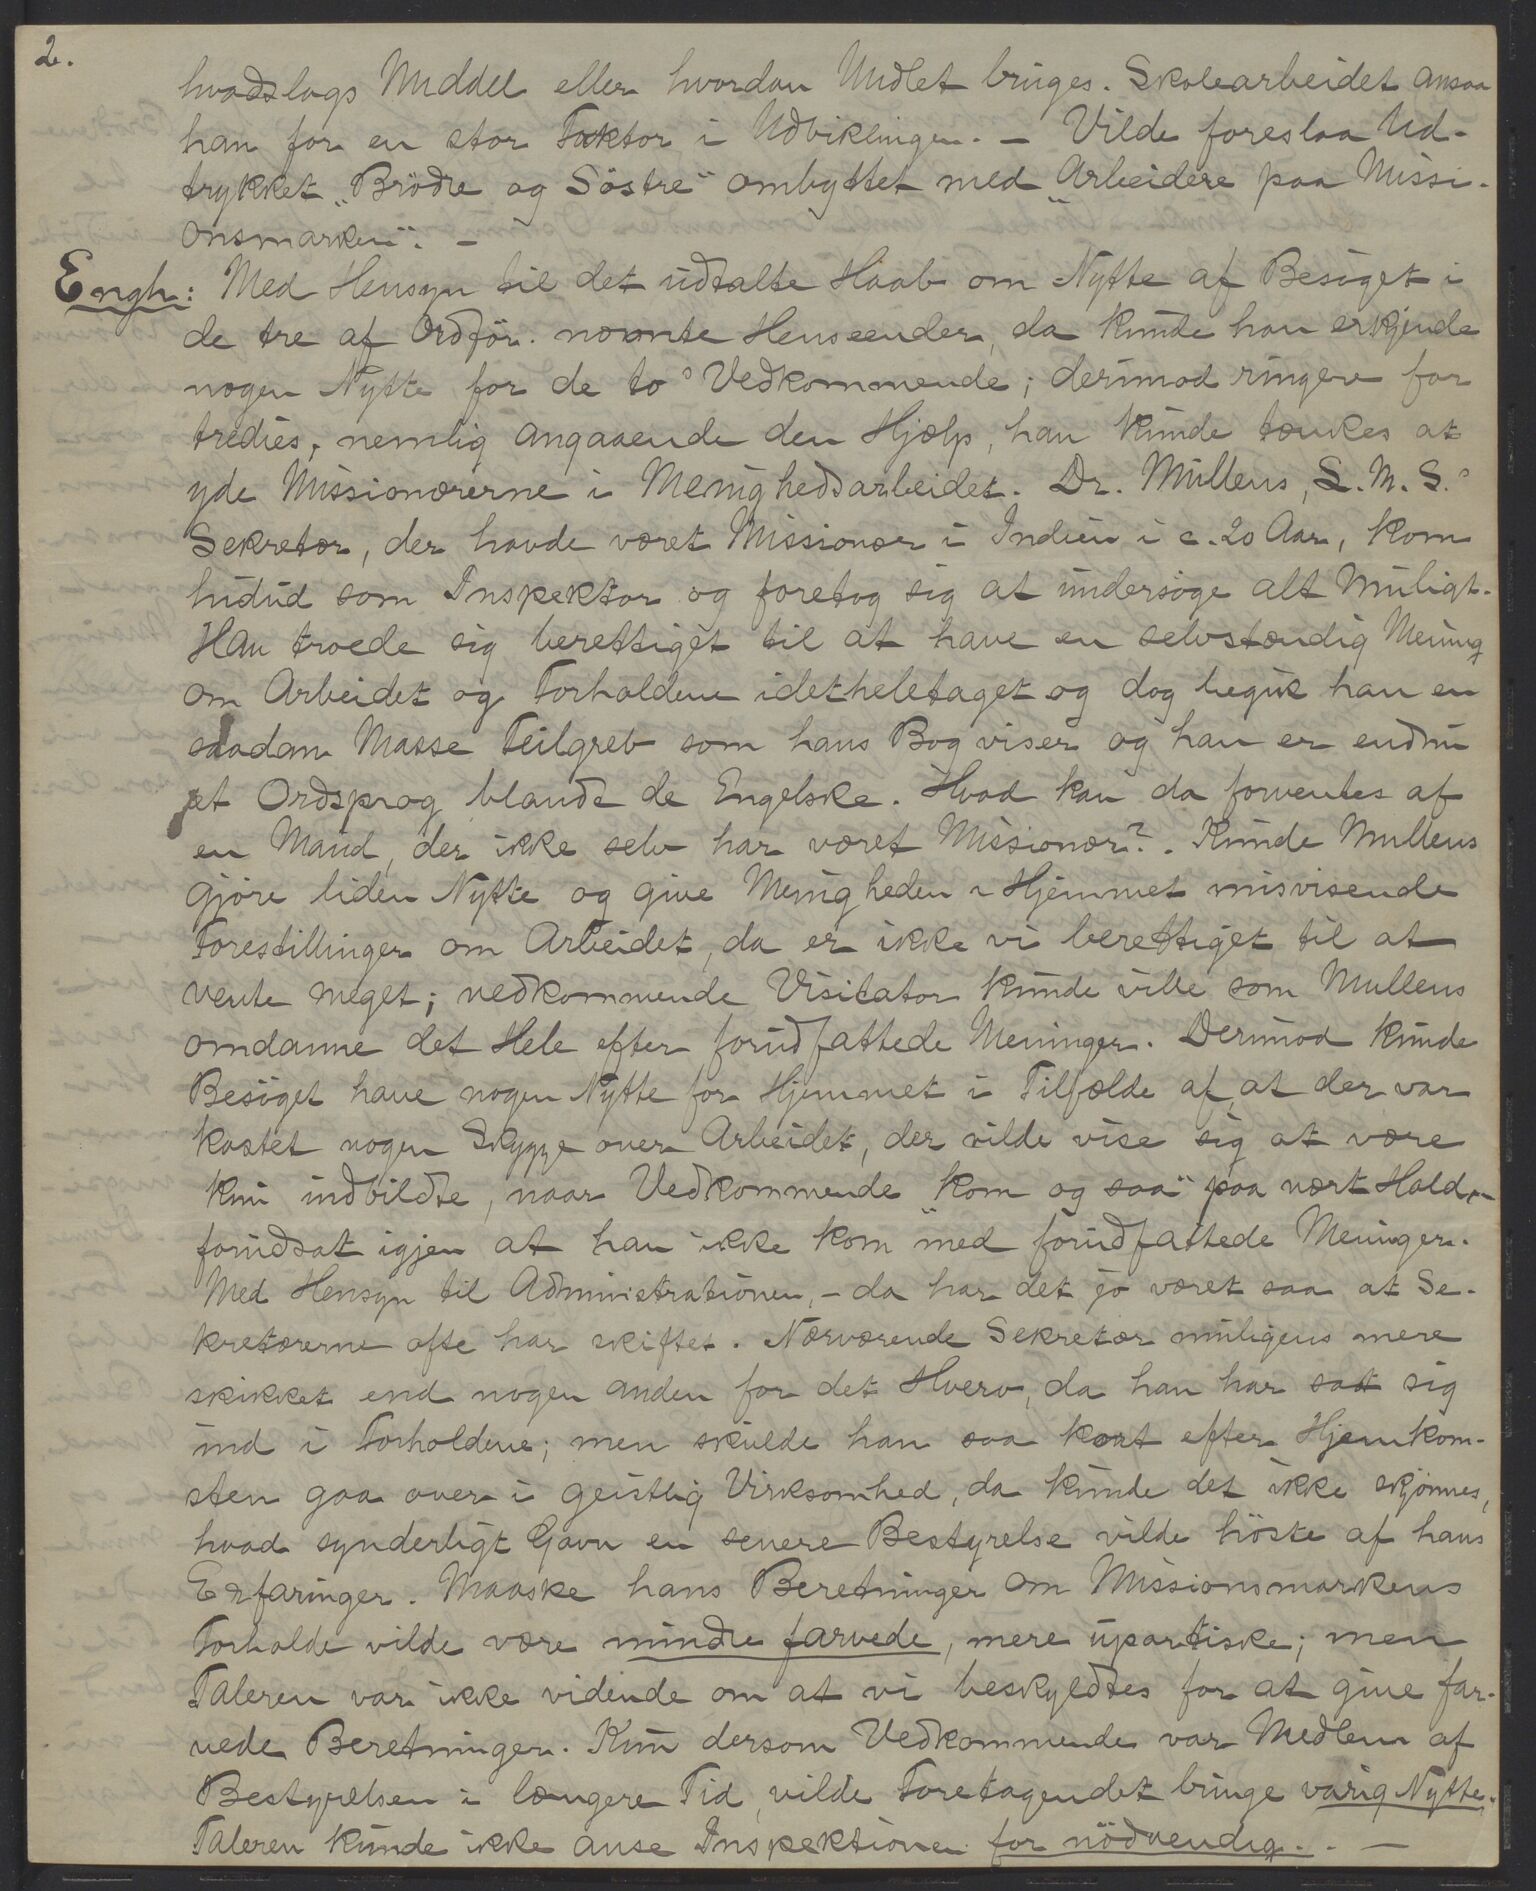 2.
hvadslags Middel eller hvordan Midlet bruges. Skolearbeidet ansaa
han for en stor Faktor i Udviklingen. – Vilde foreslaa Ud-
trykket „Brødre og Søstre“ ombyttet med „Arbeidere paa Missi-
onsmarken“. –
Engh: Med Hensyn til det udtalte Haab om Nytte af Besøget i
de tre af Ordfør. nævnte Henseender, da kunde han erkjende
nogen Nytte for de to's Vedkommende; derimod ringere for
tredies, nemlig angaaende den Hjælp, han kunde tænkes at
yde Missionærerne i Menighedsarbeidet. Dr. Mullens, L.M.S.'s
Sekretær, der havde været Missionær i Indien i c. 20 Aar, kom
hidud som Inspektør og foretog sig at undersøge alt muligt.
Han troede sig berettiget til at have en selvstændig Mening
om Arbeidet og Forholdene idetheletaget og dog begik han en
saadan Masse Feilgreb som hans Bog viser og han er endnu
et Ordsprog blandt de Engelske. Hvad kan da forventes af
en Mand, der ikke selv har været Missionær?. Kunde Mullens
gjøre liden Nytte og give Menigheden i Hjemmet misvisende
Forestillinger om Arbeidet, da er ikke vi berettiget til at
vente meget; vedkommende Visitator kunde ville som Mullens
omdanne det Hele efter forudfattede Meninger. Derimod kunde
Besøget have nogen Nytte for Hjemmet i Tilfælde af, at der var
kastet nogen Skygge over Arbeidet, der vilde vise sig at være
kun indbildte, naar Vedkommende „kom og saa“ paa nært Hold, –
forudsat igjen at han ikke kom med forudfattede Meninger.
Med Hensyn til Administrationen, – da har det jo været saa at Se-
kretærerne ofte har skiftet. Nærværende Sekretær muligens mere
skikket end nogen anden for det Hverv, da han har sat sig
ind i Forholdene; men skulde han saa kort efter Hjemkom-
sten gaa over i geistlig Virksomhed, da kunde det ikke skjønnes,
hvad synderligt Gavn en senere Bestyrelse vilde høste af hans
Erfaringer. Maaske hans Beretninger om Missionsmarkens
Forholde vilde være mindre farvede, mere upartiske; men
Taleren var ikke vidende om at vi beskyldtes for at give far-
vede Beretninger. Kun dersom Vedkommende var Medlem af
Bestyrelsen i længere Tid, vilde Foretagendet bringe varig Nytte.
Taleren kunde ikke anse Inspektionen for nødvendig. . –